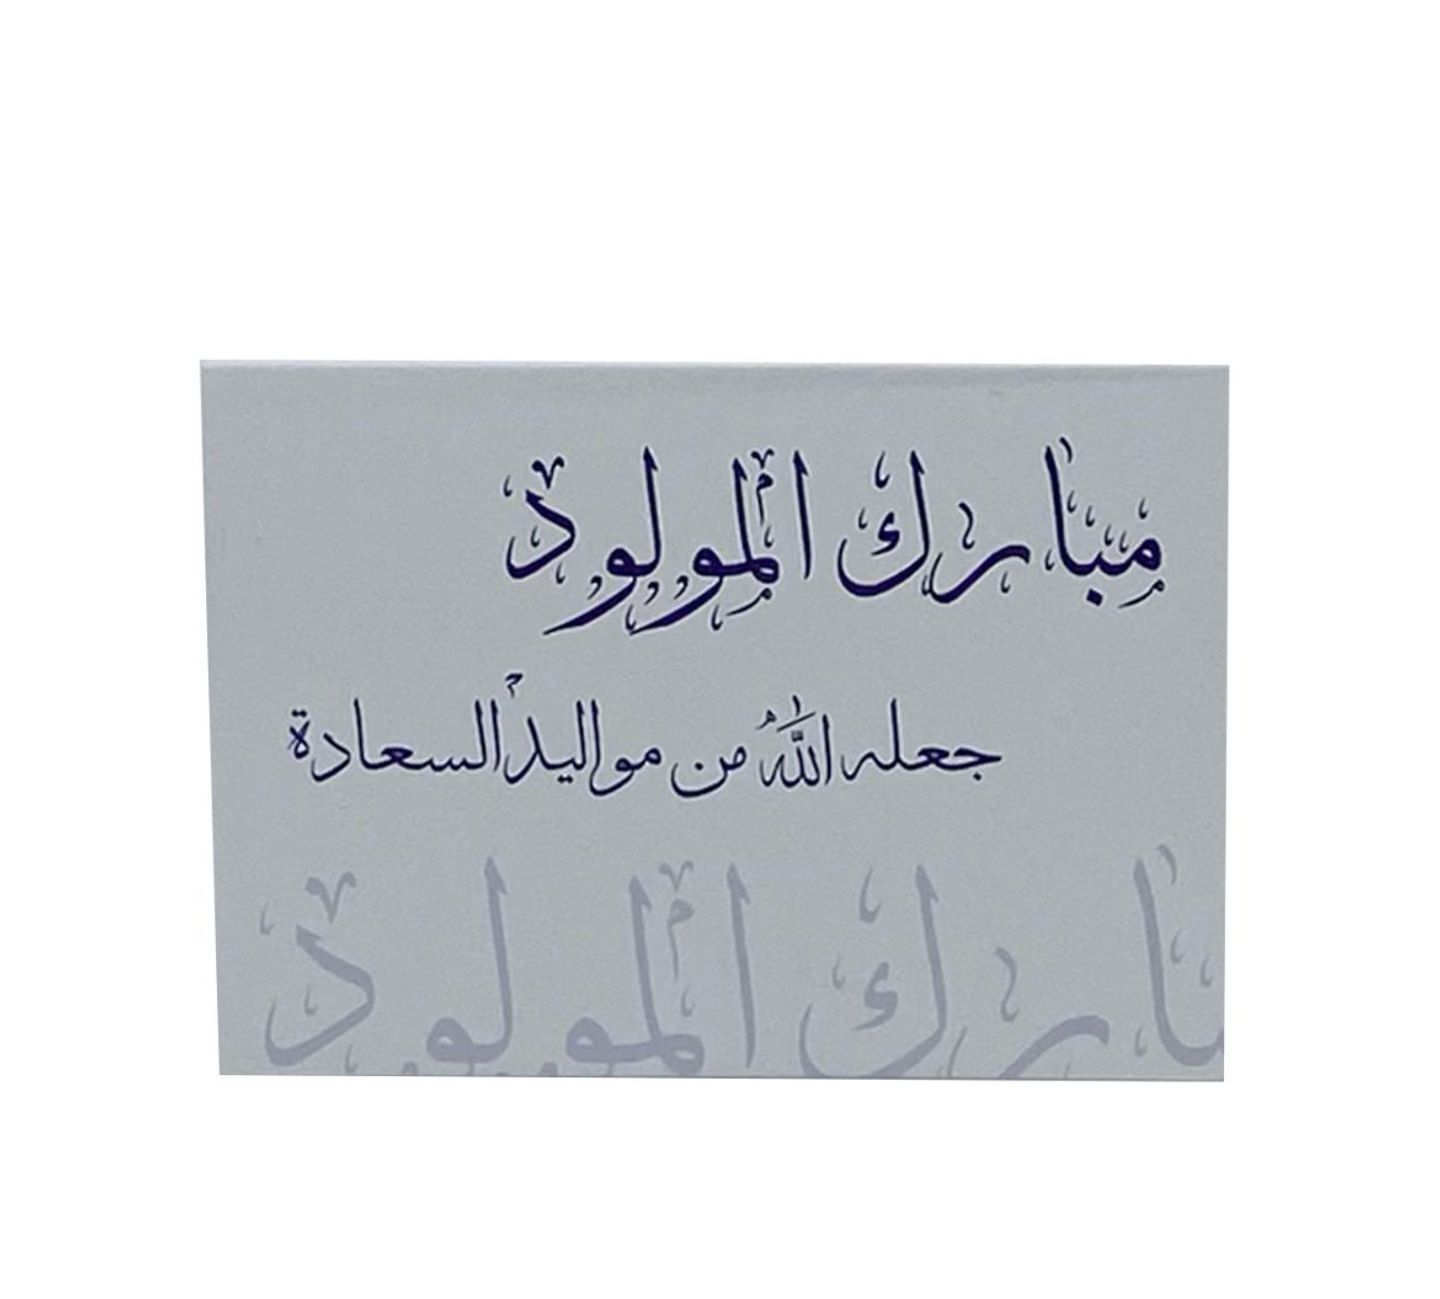 مبارك المولود
جعله الله من مواليد السعادة
بارك المولود